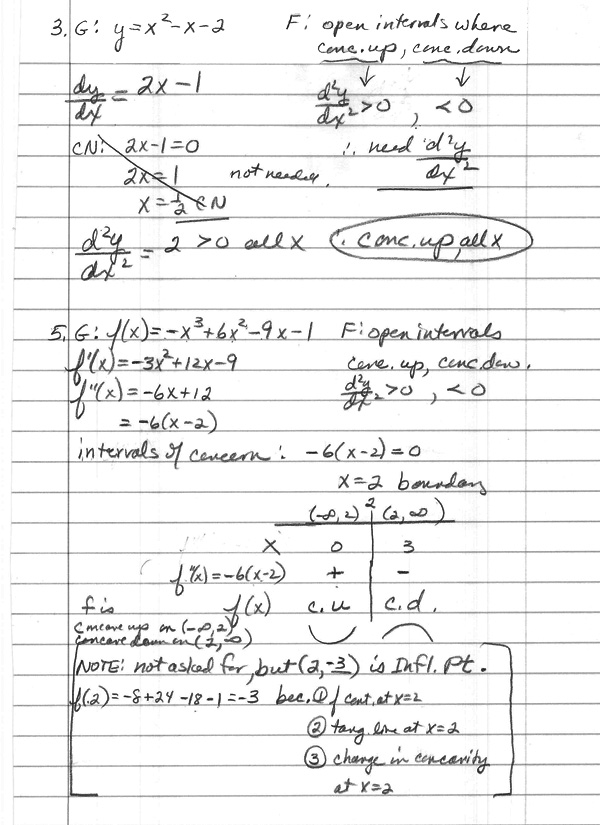 3. G: y = x² - x - 2 F: open intervals where
conc. up, conc. down
dy/dx = 2x - 1 d²y/dx² > 0 , < 0
CN: 2x - 1 = 0 ∴ need d²y/dx²
2x = 1 not needed.
x = 1/2 CN
d²y/dx² = 2 > 0 all x ∴ conc. up, all x
5. G: f(x) = -x³ + 6x² - 9x - 1 F: open intervals
f'(x) = -3x² + 12x - 9 conc. up, conc. dow.
f''(x) = -6x + 12 d²y/dx² > 0 , < 0
= -6(x - 2)
intervals of concern: -6(x - 2) = 0
x = 2 boundary
(-∞, 2) 2 (2, ∞)
x 0 3
f''(x) = -6(x - 2) + -
f is f(x) c.u c.d.
concave up on (-∞, 2)
concave down on (2, ∞)
NOTE: not asked for, but (2, -3) is Infl. Pt.
f(2) = -8 + 24 - 18 - 1 = -3 bec. ① f cont. at x = 2
② tang line at x = 2
③ change in concavity
at x = 2